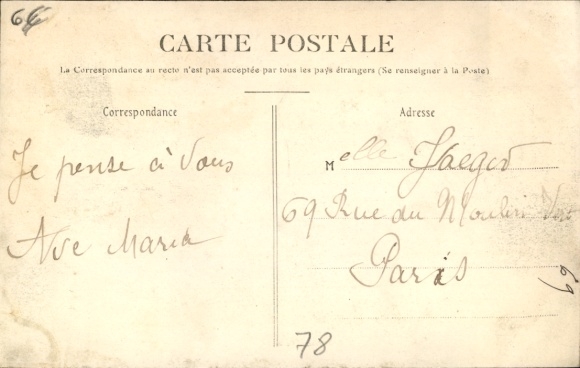 CARTE POSTALE
La Correspondance au recto n'est pas acceptée par tous les pays étrangers (Se renseigner à la Poste)
Correspondance
Je pense à Vous
Ave Maria
Adresse
Melle
69 Rue du Moulin Vert
Paris
69
78